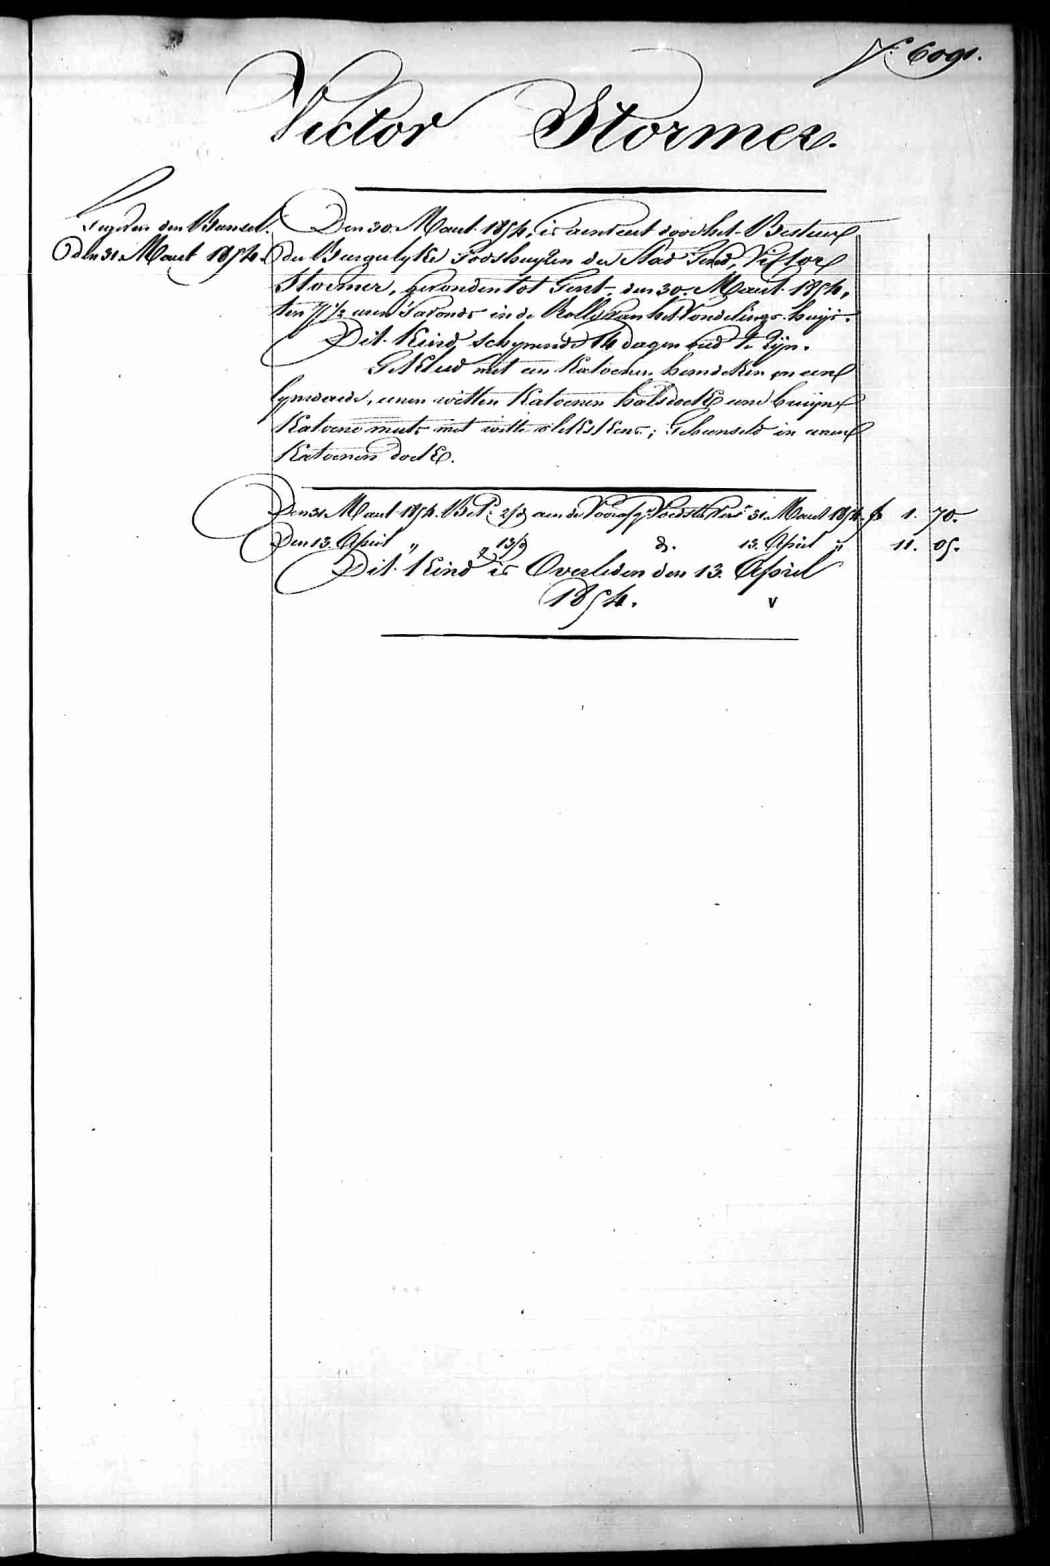 N.º 6091.
Victor Stormer.
den 31 Maert 1854.
Den 30 Maert 1854, is aenveert door het Bestuur
der Burgelyke Godshuyzen der Stad Gend, Victor
Stormer, gevonden tot Gent, den 30 Maert 1854,
ten 7 1/2 uren 's avonds in de Rolle van het Vondelings-huijs.
Dit Kind schynende 14 dagen oud te zijn.
Gekleed met een Katoenen hemdeken en een
lynwaede, eenen witten Katoenen halsdoek eene bruijne
Katoene muts met witte ; Gebunseld in eenen
Katoenen doek.
Den 31 Maert 1854. Bet. 2/3 aen de Voedster 31 Maert 1854. fr 1. 70.
Den 13 April " 13/3 d. 13 April " 11. 05.
Dit Kind is Overleden den 13 April
1854. v